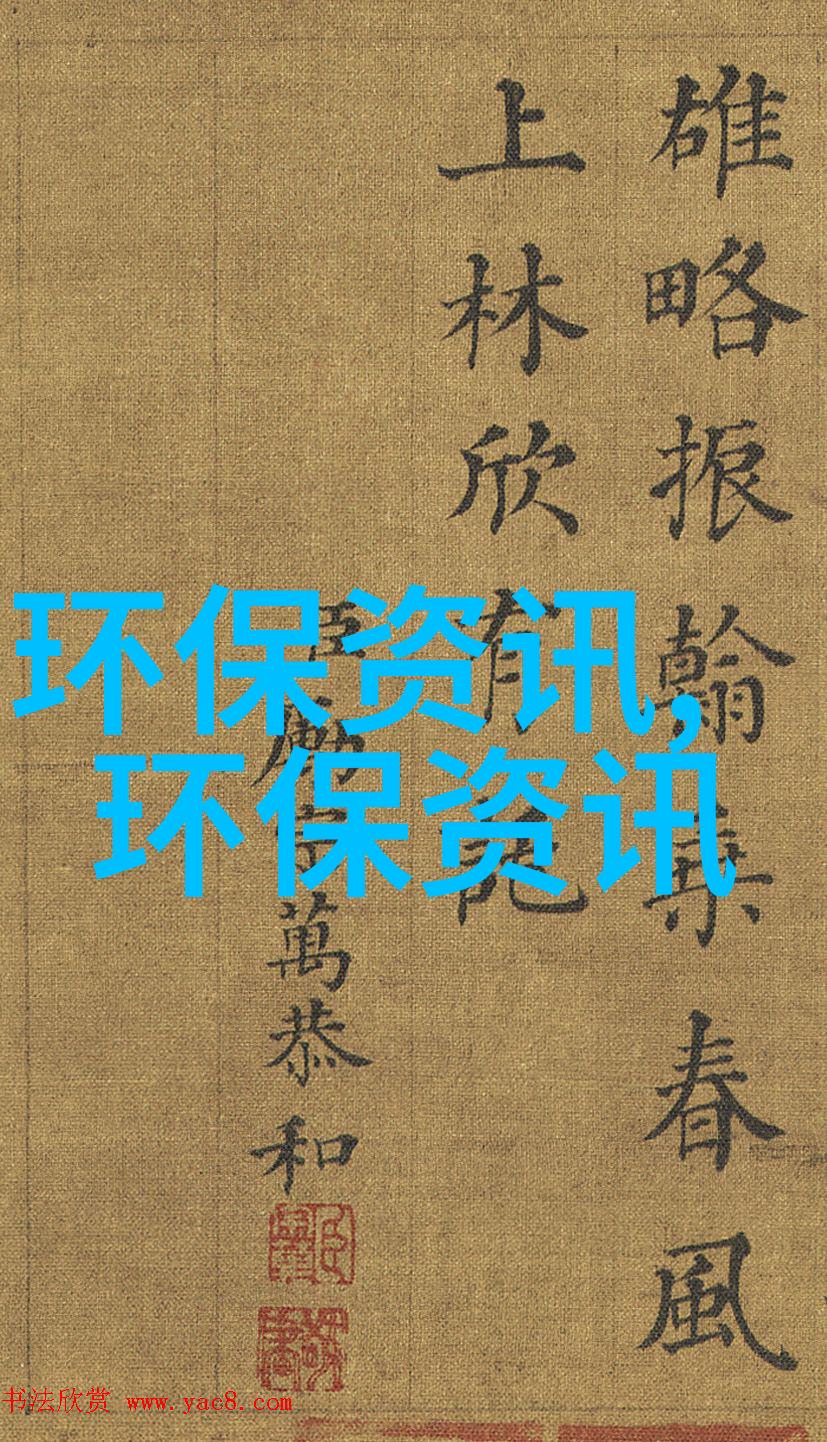 雄略振翰乘春風
上林欣有託
臣勵宗萬恭和
环保资讯,
环保资讯
书法欣赏 www.yac8.com